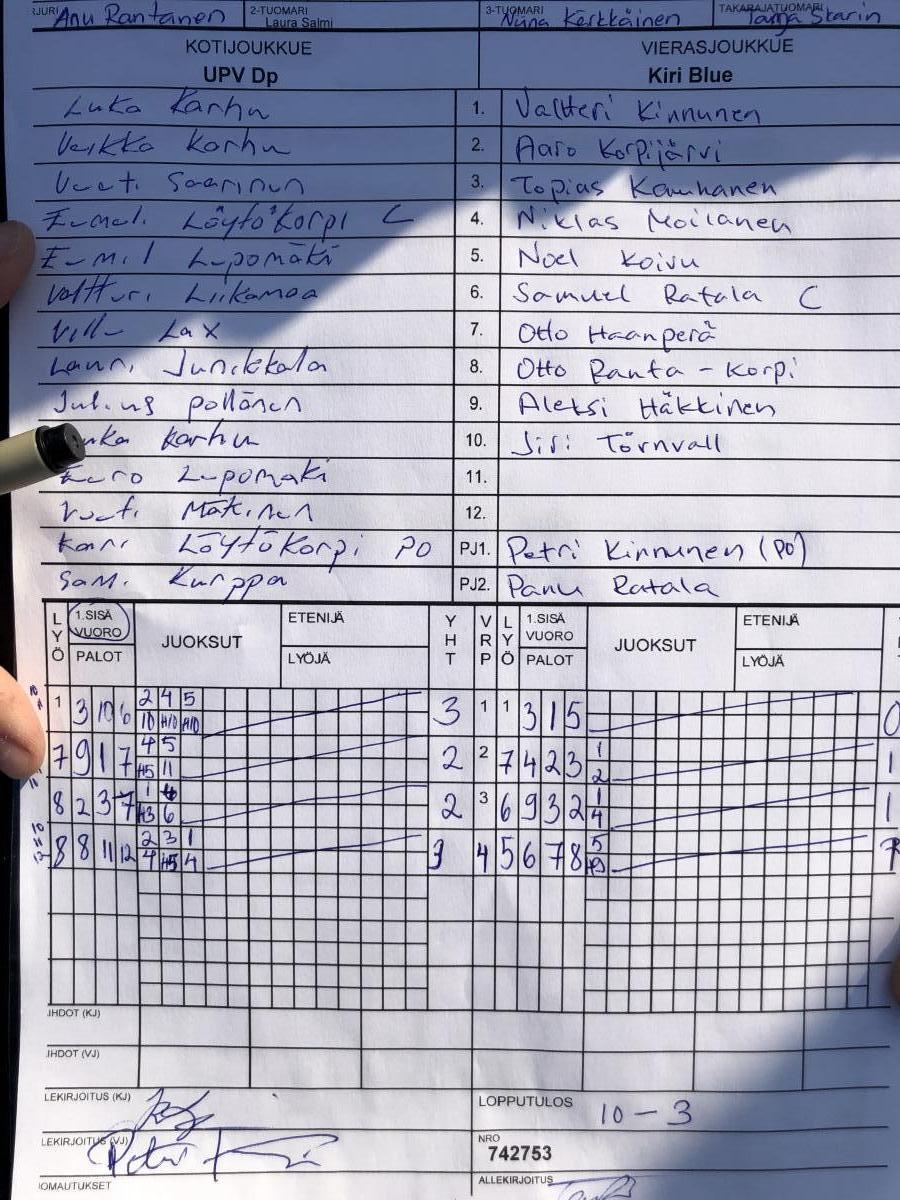 Anu Rantanen 2-TUOMARI Laura Salmi 3-TUOMARI Niina Kärkkäinen TAKARAJATUOMARI Tanja Skarin
KOTIJOUKKUE VIERASJOUKKUE
UPV Dp Kiri Blue
Luka Karhu 1. Valtteri Kinnunen
Veikka Karhu 2. Aaro Korpijärvi
Veeti Saarinen 3. Topias Kauhanen
Eemeli Löytökorpi C 4. Niklas Moilanen
Eemil Lepomäki 5. Noel Koivu
Valtteri Liikamaa 6. Samuel Ratala C
Ville Lax 7. Otto Haanperä
Lauri Junikkala 8. Otto Ranta-Korpi
Julius Pollänen 9. Aleksi Häkkinen
Karhu 10. Jiri Törnvall
Eero Lepomäki 11.
Veeti Mäkinen 12.
Löytökorpi PO PJ1. Petri Kinnunen (PO)
Sami Kurppa PJ2. Panu Ratala
LYÖ 1.SISÄ VUORO JUOKSUT ETENIJÄ YHT VRP LYÖ 1.SISÄ VUORO JUOKSUT ETENIJÄ
PALOT LYÖJÄ PALOT LYÖJÄ
2 4 5
1 3 10 6 10 H10 H10 3 1 1 3 1 5 0
4 5 1
7 9 1 7 H5 11 2 2 7 4 2 3 2 1
1 4 1
8 2 3 7 H3 6 2 3 6 9 3 2 4 1
2 3 1 5
8 8 11 12 4 H5 4 3 4 5 6 7 8 H9 1
JHDOT (KJ)
JHDOT (VJ)
LEKIRJOITUS (KJ) LOPPUTULOS 10 - 3
LEKIRJOITUS (VJ) NRO
742753
OMAUTUKSET ALLEKIRJOITUS